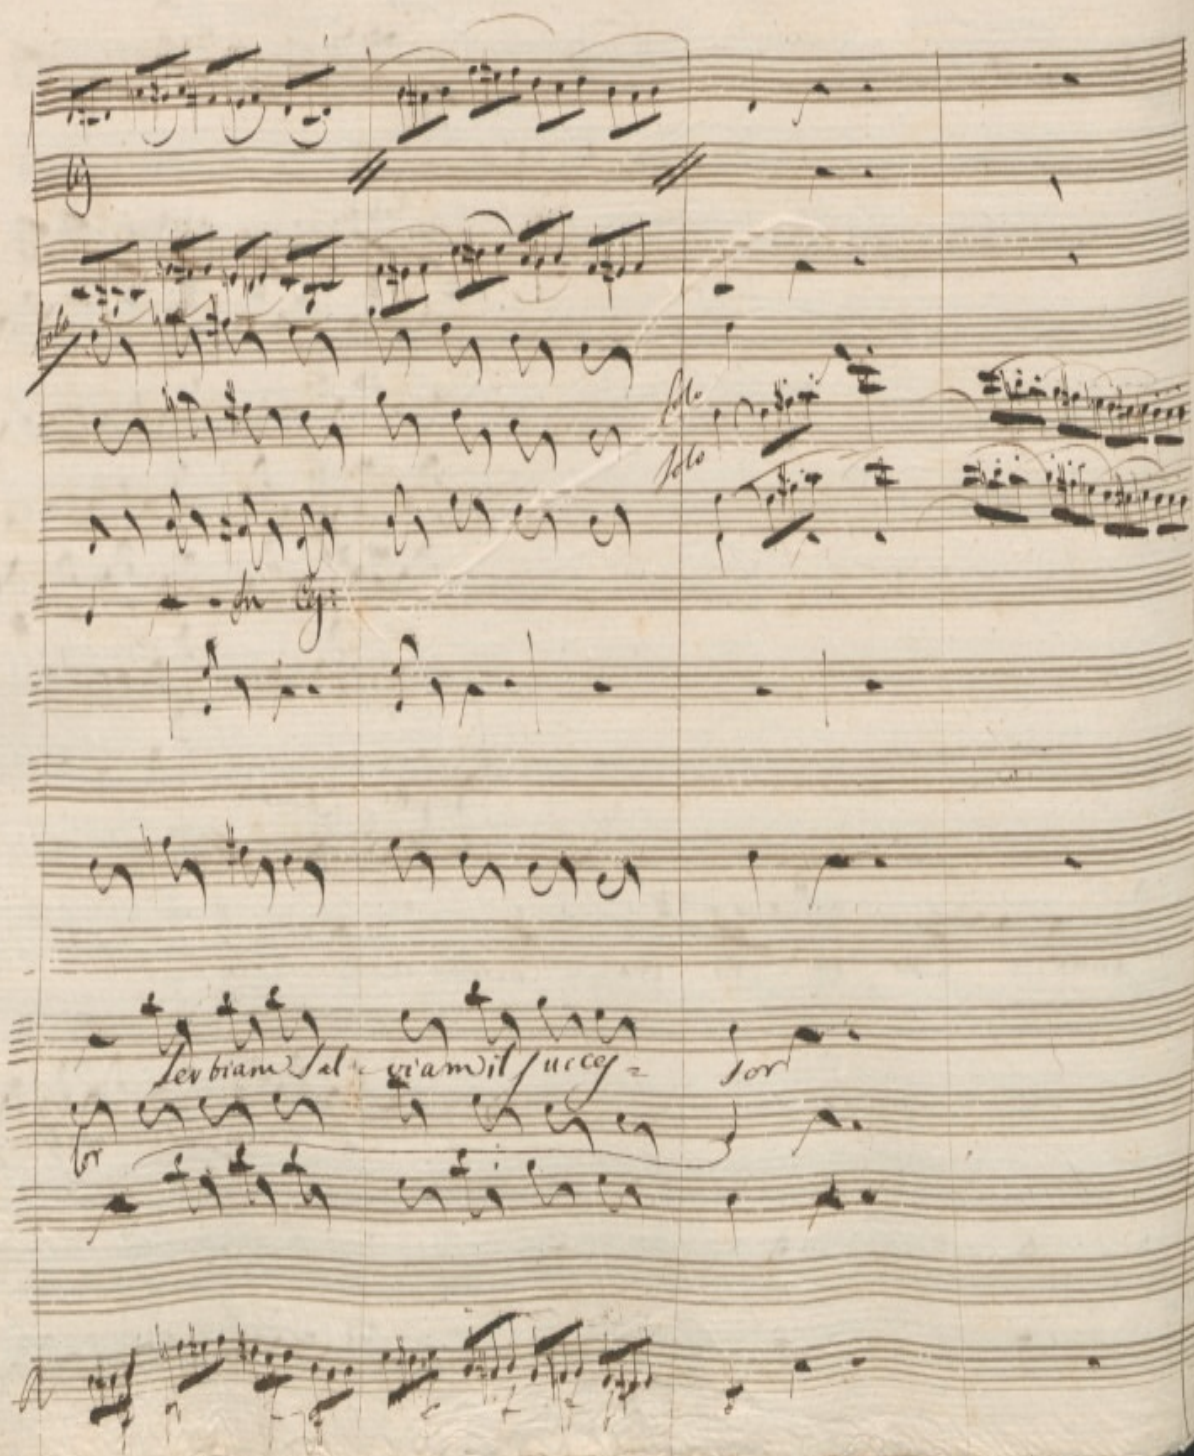 solo
solo
solo
In
Serbiam sal - viam il succes =
sor
sor